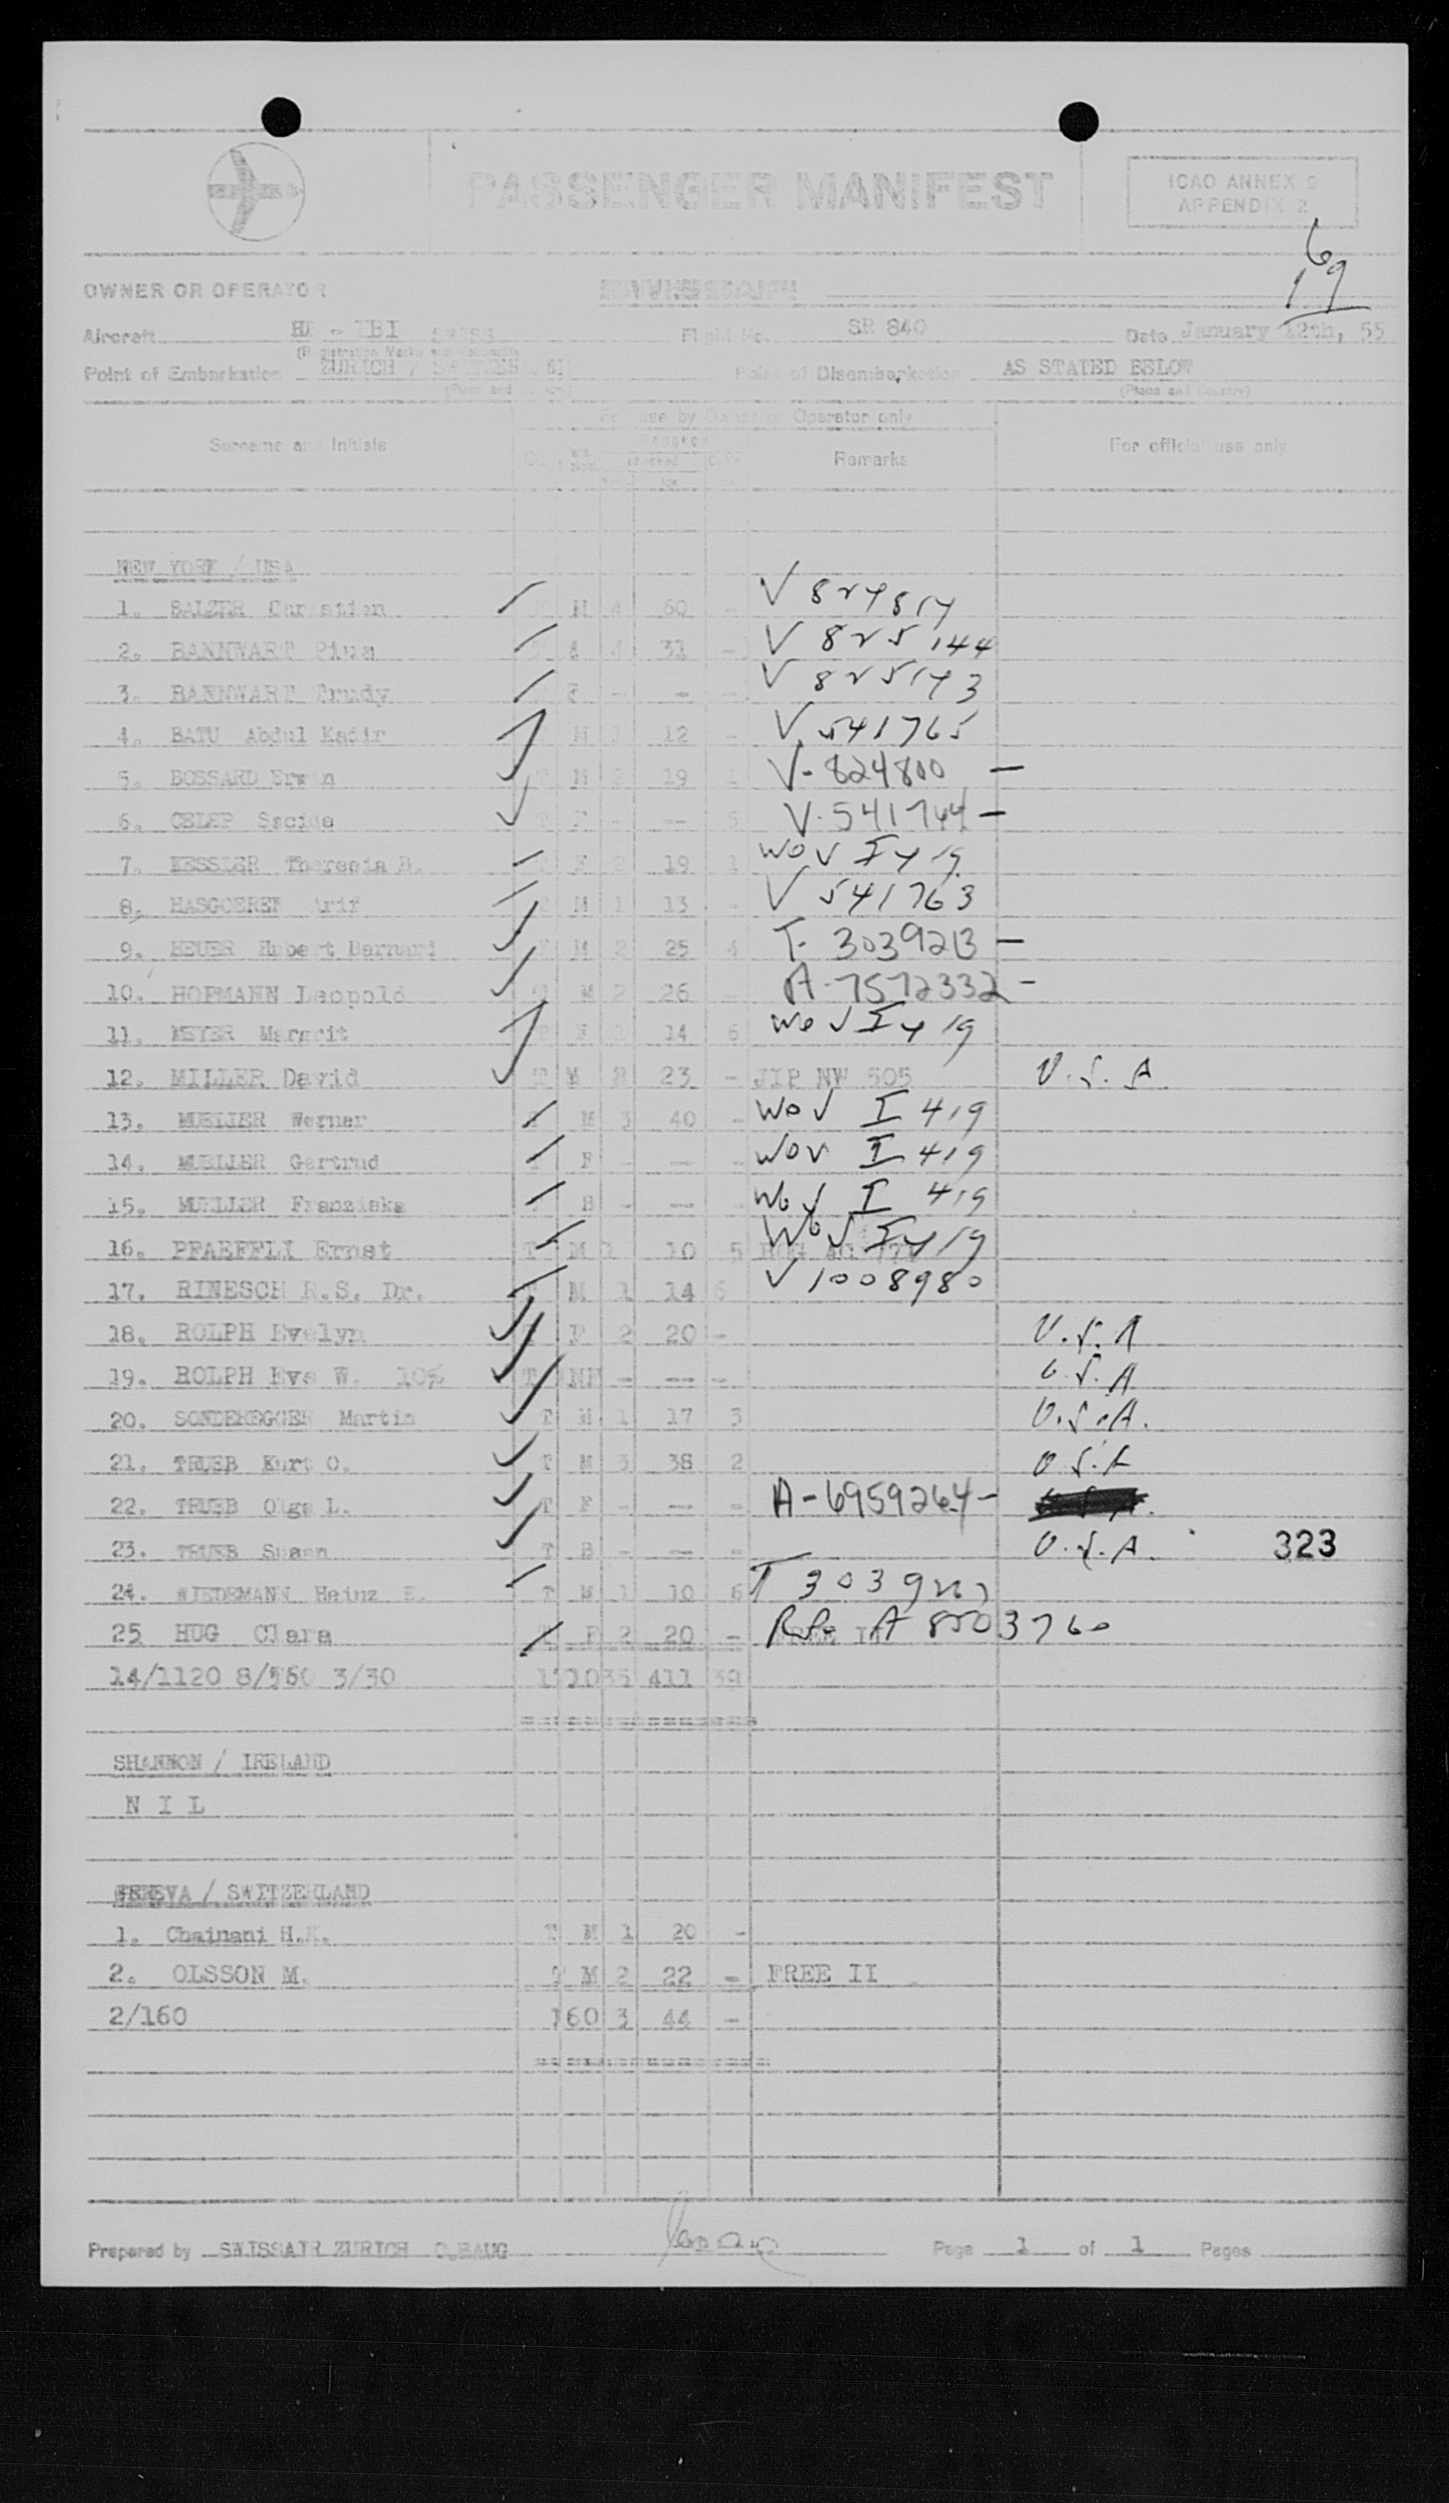 PASSENGER MANIFEST
ICAO ANNEX 9
APPENDIX 2
6
19
OWNER OR OPERATOR
Aircraft HB - IBI SWISS Flight No. SR 840 Date January 12th, 55
Point of Embarkation ZURICH / Point of Disembarkation AS STATED BELOW
(Place and Country)
For use by Owner or Operator only
Surname and Initials Remarks For official use only
NEW YORK / USA
1. BALZER Christian M 4 60 - V 824814
2. BANNWART Pius 4 31 - V 825 144
3. BANNWART Trudy F - - - V 825143
4. BATU Abdul Kadir M 1 12 - V 541765
5. BOSSARD Erwin M 2 19 1 V- 824800 -
6. CELEP Sacide F - -- 5 V. 541764 -
7. KESSLER Theresia B. F 2 19 1 WOV I 419
8. HASGOEREN Arif M 1 13 - V 541763
9. HEUER Hubert Bernard M 2 25 4 T- 3039213 -
10. HOFMANN Leopold M 2 26 - A-7572332 -
11. MEYER Margrit F 14 6 WOV I 419
12. MILLER David T M 2 23 - JIP NW 505 U.S.A
13. MUELLER Werner T M 3 40 - WOV I 419
14. MUELLER Gertrud T F - -- - WOV I 419
15. MUELLER Franziska B - -- - WOV I 419
16. PFAEFFLI Ernst T M 1 10 5 WOV I 419
17. RINESCH R.S. Dr. M 1 14 6 V 1008980
18. ROLPH Evelyn T F 2 20 - U.S.A
19. ROLPH Eva W. 10% T INF - -- - U.S.A
20. SONDEREGGER Martin T M 1 17 3 U.S.A.
21. TRUEB Kurt O. T M 3 38 2 U.S.A
22. TRUEB Olga L. T F - -- - A-6959264 -
23. TRUEB Susan T B - -- - U.S.A. 323
24. WIEDEMANN Heinz E. T M 1 10 6 T 3039
25 HUG Clara F 2 20 - A 8503760
14/1120 8/560 3/30 35 411 39
SHANNON / IRELAND
N I L
GENEVA / SWITZERLAND
1. Chainani H.K. T M 1 20 -
2. OLSSON M. T M 2 22 - FREE II
2/160 160 3 44 -
Prepared by SWISSAIR ZURICH O.HAUG Page 1 of 1 Pages